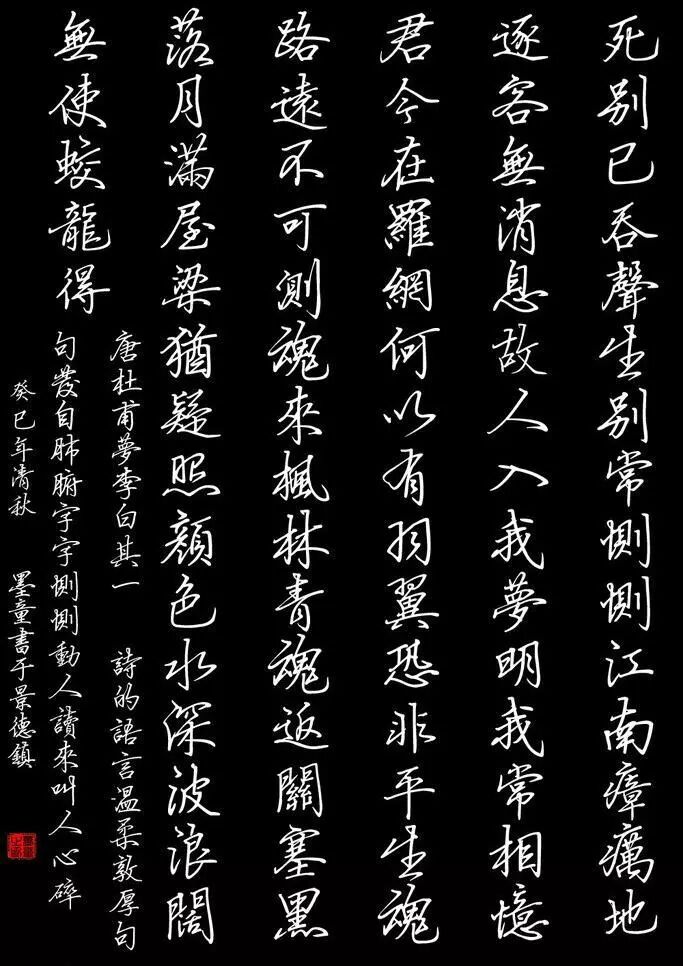 死別已吞聲生別常惻惻江南瘴癘地
逐客無消息故人入我夢明我常相憶
君今在羅網何以有羽翼恐非平生魂
路遠不可測魂來楓林青魂返關塞黑
落月滿屋梁猶疑照顏色水深波浪闊
無使蛟龍得
唐杜甫夢李白其一 詩的語言溫柔敦厚句
句發自肺腑字字惻惻動人讀來叫人心碎
癸巳年清秋 墨童書于景德鎮